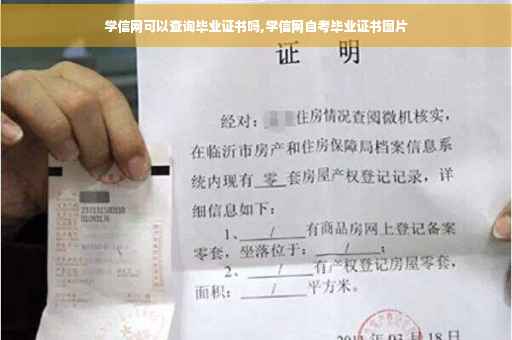 学信网可以查询毕业证书吗,学信网自考毕业证书图片
证 明
经对: 住房情况查阅微机核实,
在临沂市房产和住房保障局档案信息系
统内现有 零 套房屋产权登记记录,详
细信息如下:
1、 / 有商品房网上登记备案
零套,坐落位于: / ;
2、 / 有产权登记房屋零套,
面积: / 平方米。
月18日